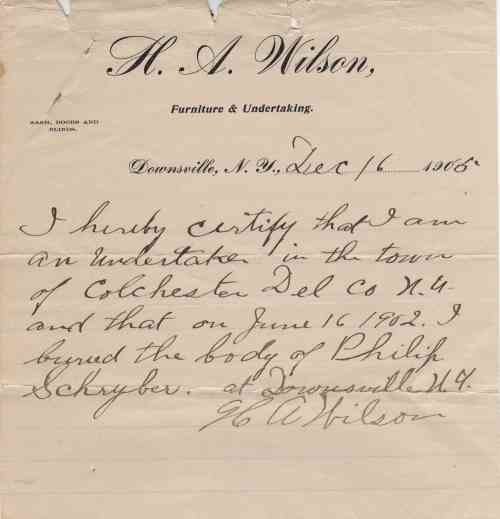 H. A. Wilson,
Furniture & Undertaking.
SASH, DOORS AND
BLINDS.
Downsville, N. Y., Dec 16 1905
I hereby certify that I am
an Undertaker in the town
of Colchester Del Co N.Y.
and that on June 16 1902. I
buried the body of Philip
Schryber. at Downsville N.Y.
H A Wilson